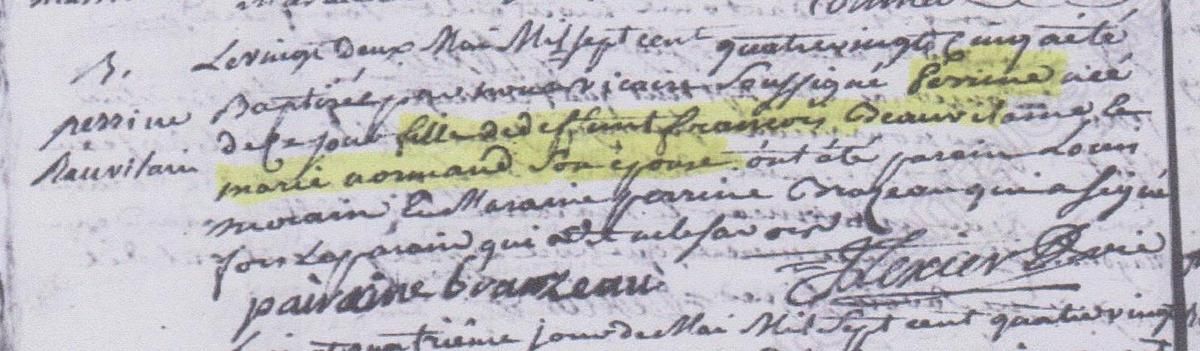 B.
perrine
Beauvilain
Le vingt Deux Mai Mil sept cent quatre vingt Cinq a été
Baptizée par nous vicaire Soussigné Perrine née
de ce jour fille de deffunt françois Beauvilain et de
marie normand Son épouse ont été parain Louis
morain Et Maraine perrine Brazeau qui a signé
fors Le parain qui a dit ne le savoir
pairaine brauzeau Texier
quatrième jour de Mai Mil Sept cent quatre vingt